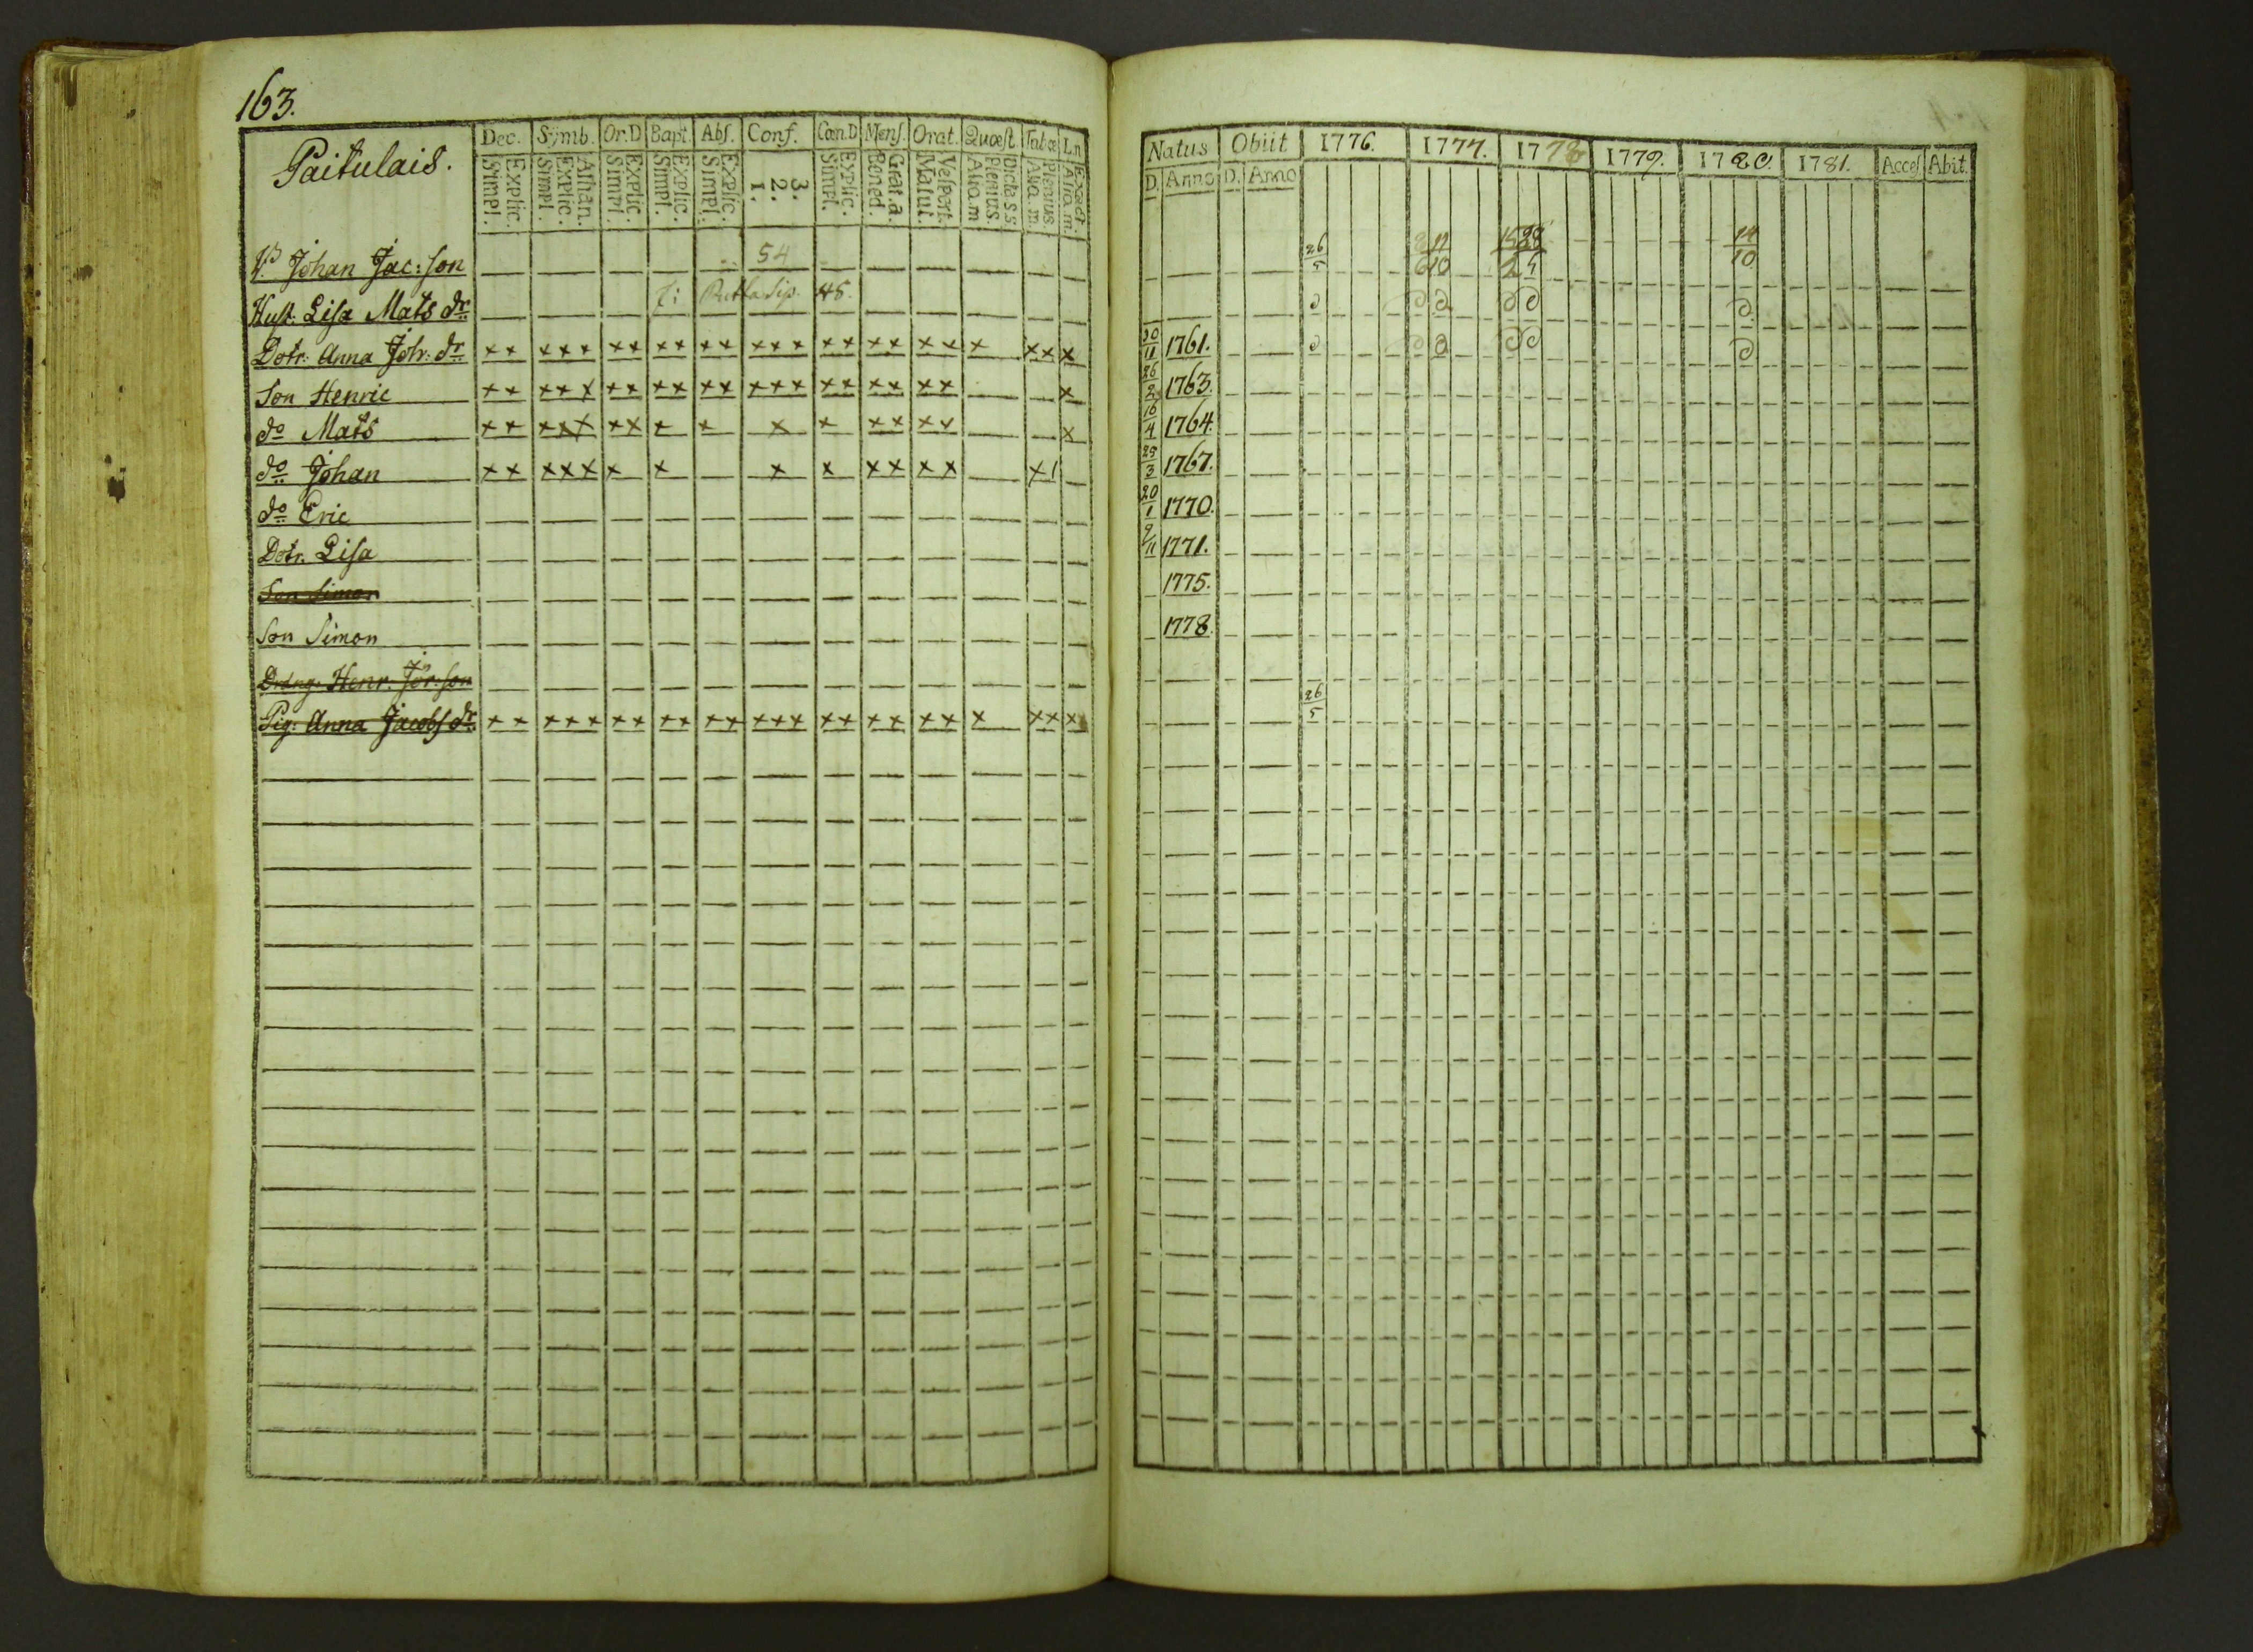 163.
Paitulais.
Dec. Symb. Or.D Bapt. Abſ. Conf. Cœn.D Menſ. Orat. Quæſt. Tabæ L.n
Explic. Simpl. Athan. Explic. Simpl. Explic. Simpl. Explic. Simpl. Explic. Simpl. 3. 2. 1. Explic. Simpl. Grat.a. Bened. Veſpert. Matut. Dicta s.s Plenius. Aliq.m Plenius. Aliq.m. Exact. Aliq.m.
Johan Jac:ſon 54
Huſt. Liſa Mats dr 48.
Dotr. Anna Joh: dr x x x x x x x x x x x x x x x x x x x x x x x x x
Son Henric x x x x x x x x x x x x x x x x x x x x x
do Mats x x x x x x x x x x x x x x x x x
do Johan x x x x x x x x x x x x x x x 1
do Eric
Dotr. Liſa
Son Simon
Son Simon
Dräng. Henr. Jör:ſon
Pig: Anna Jacobſ dr x x x x x x x x x x x x x x x x x x x x x x x x x
Natus Obiit 1776. 1777. 1778 1779. 1780. 1781. Acceſ Abit.
D. Anno D. Anno
26/5 14/10
30/11 1761.
26/2 1763.
16/4 1764.
29/3 1767.
20/1 1770.
9/11 1771.
1775.
1778.
26/5